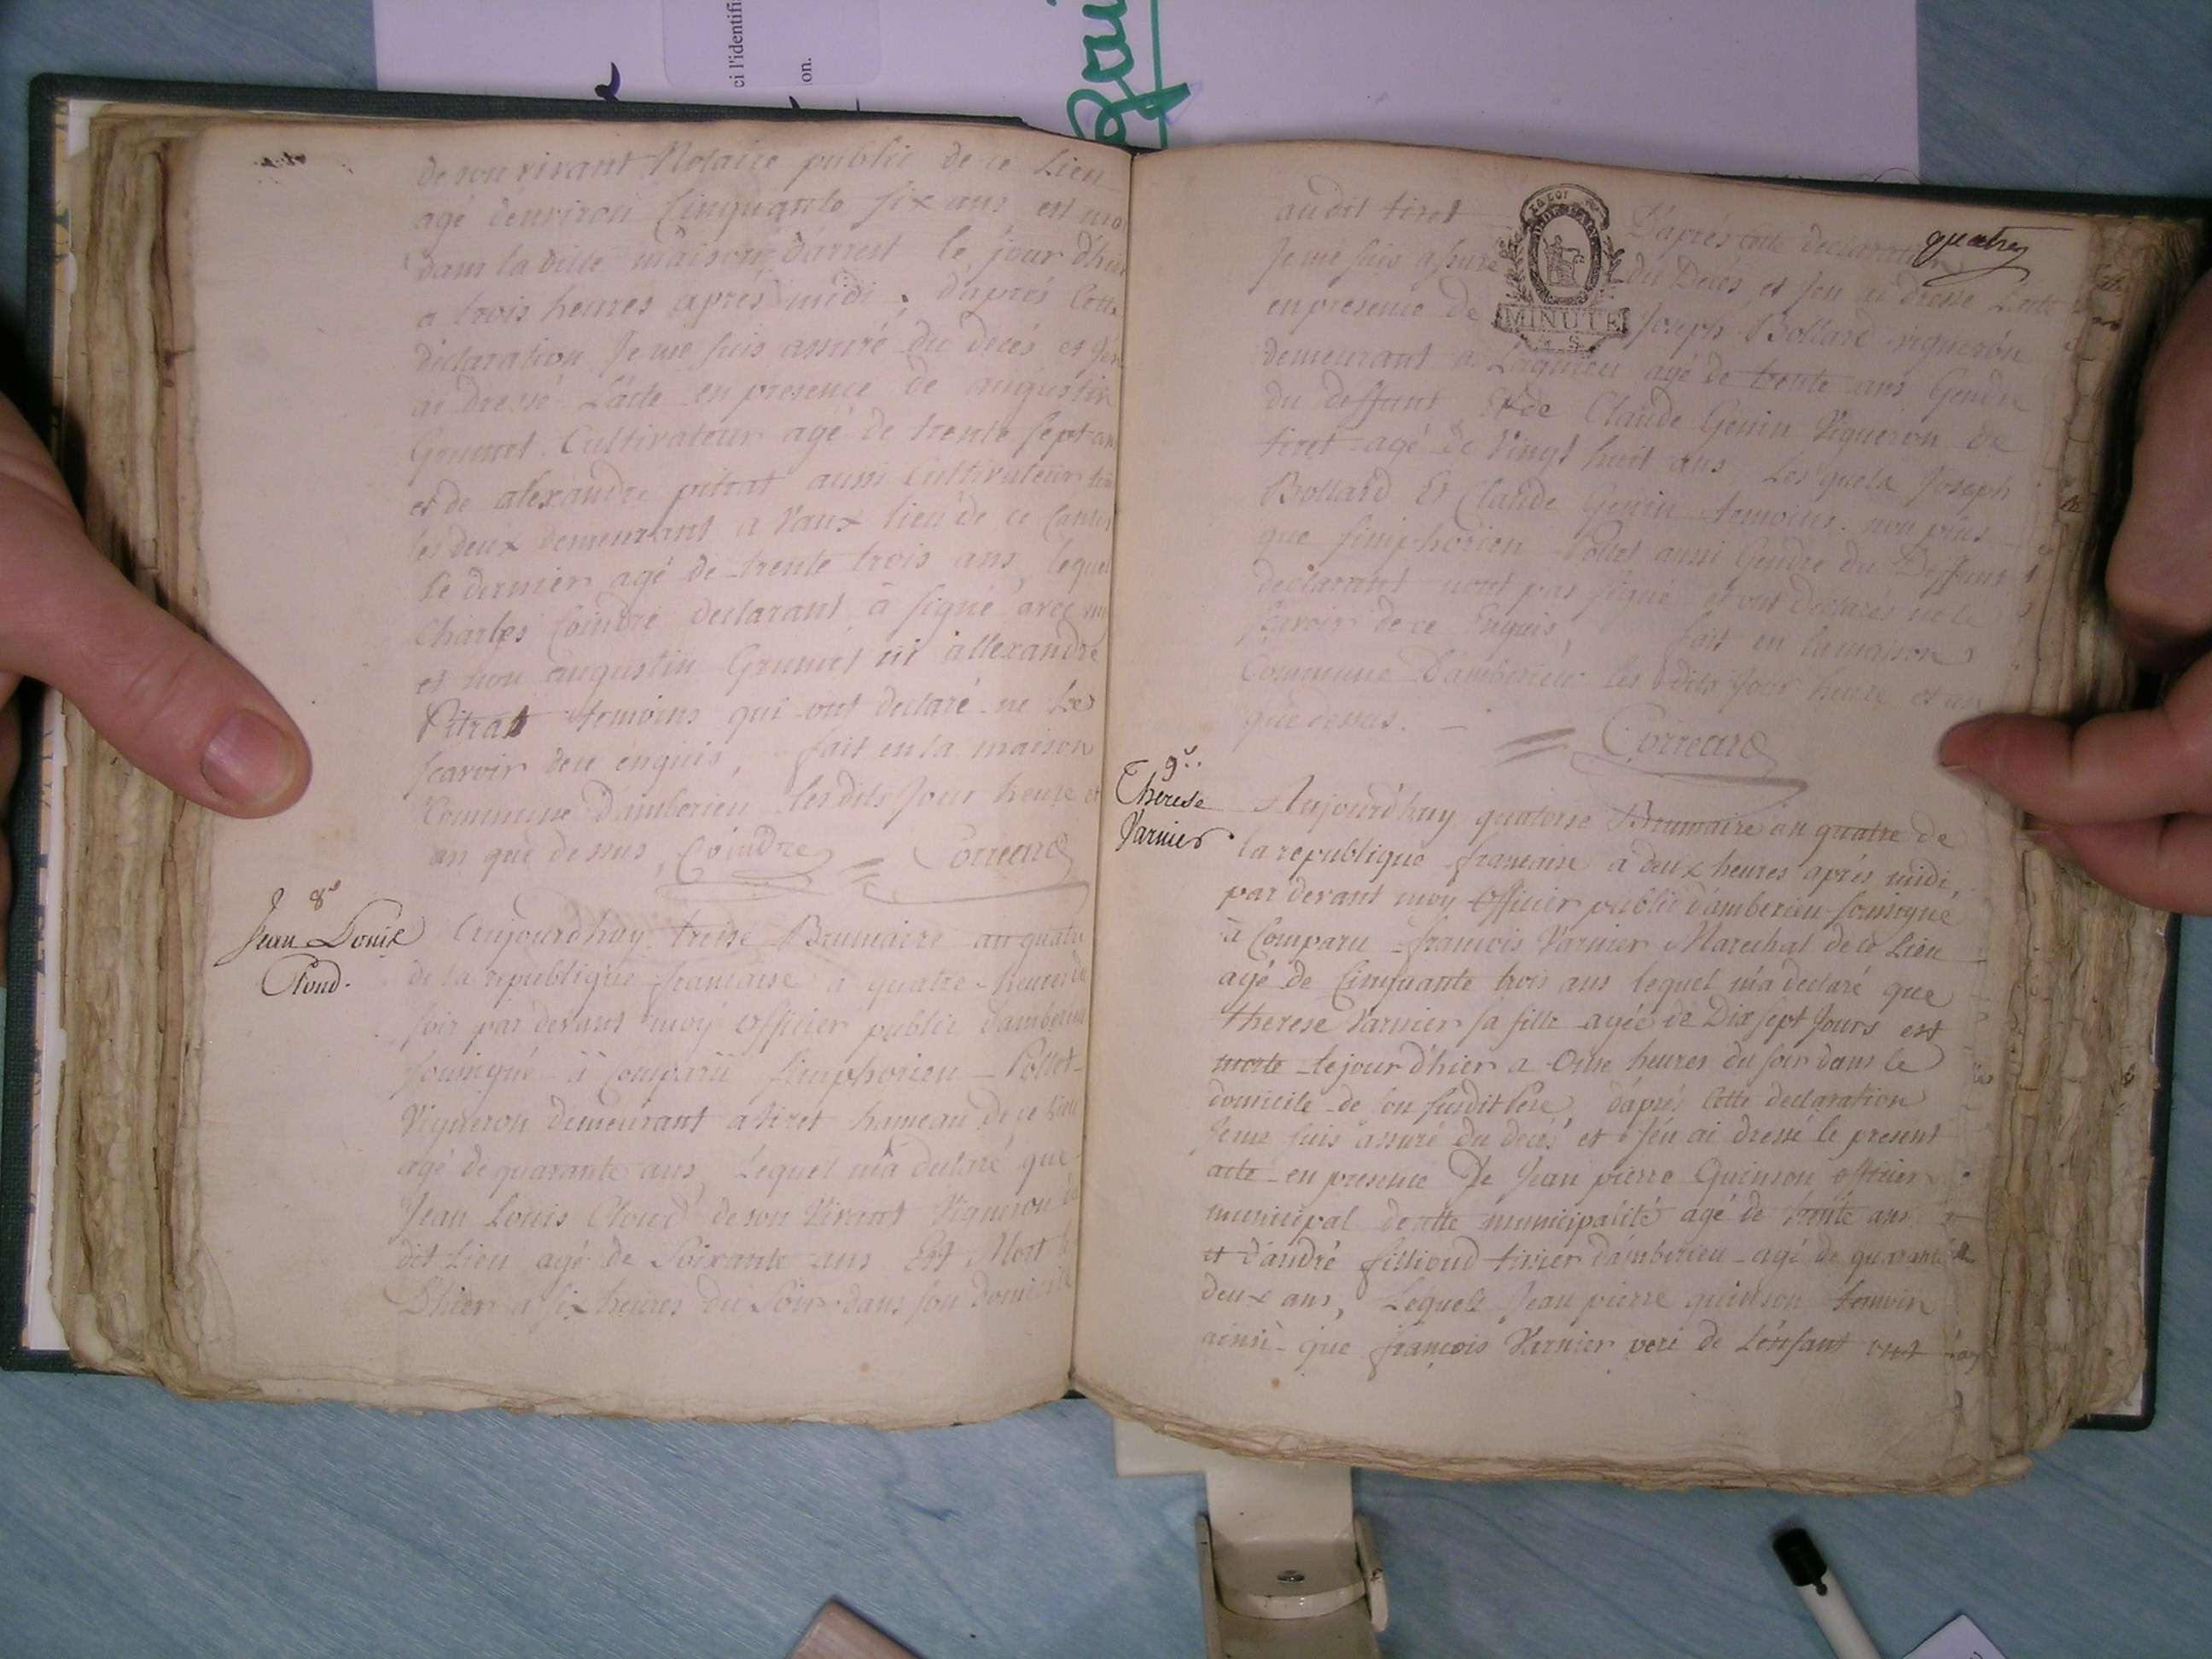 ci l'identifi
on.
de son vivant Notaire public de ce Lieu
agé denviron Cinquante six ans est mo
dans la ditte maison d'arrest le jour d'hier
a trois heures aprés midi. d'aprés Cette
déclaration Je me suis assuré du decés et Jen
ai Dressé L'acte en presence de augustin
Grumet Cultivateur agé de trente sept ans
et de alexandre pitrat aussi cultivateur
les deux demeurant a Vaux lieu de ce Canton
Le dernier agé de trente trois ans, lequel
Charles Coindre declarant à signé avec
et non augustin Grumet ni allexandre
Pitrat temoins qui ont declaré ne Le
scavoir dece enquis, fait en la maison
Commune D'amberieu les dits Jour heure et
an que dessus, Coindre Correard
8e
Jean Louis
Cloud.
Aujourdhuy treise Brumaire an quatre
de la republique francaise a quatre heures du
soir par devant moy officier public damberieu
soussigné à Comparu Simphorien Pollet
Vigneron demeurant a tiret hameau de ce Lieu
agé de quarante ans Lequel m'a declaré que
Jean Louis Cloud de son Vivant Vigneron
dit Lieu agé de Soixante ans Est Mort
D'hier a six heures du Soir dans son domicile
quatre
MINUTE
audit tiret D'aprés cette declaration
Je me suis assuré du Decés et Jen ai dressé L'acte
en presence de Joseph Bollard vigneron
demeurant a Lagnieu agé de trente ans Gendre
du deffunt Et de Claude Genin Vigneron de
tiret agé de Vingt huit ans Les quels Joseph
Bollard Et Claude Genin temoins non plus
que Simphorien Pollet aussi Gendre du Deffunt
declarant nont pas signé et ont declarés ne le
scavoir de ce Enquis, fait en la maison
Commune D'amberieu les dits Jour heure et an
que dessus. Correard
9e..
Therese
Varnier
Aujourd'huy quatorse Brumaire an quatre de
la republique francaise a deux heures aprés midi,
par devant moy Officier public damberieu soussigné
à Comparu francois Varnier Marechal de ce Lieu
agé de Cinquante trois ans lequel m'a declaré que
therese Varnier sa fille agée de Dix sept Jours est
morte le jour d'hier a Onse heures du soir dans le
domicile de son susdit Pere, d'aprés Cette declaration
Je me suis assuré du decés et Jen ai dressé le present
acte en presence De Jean pierre Quinson officier
municipal de cette municipalité agé de trente ans
et d'andré fillioud tixier damberieu agé de quarante
deux ans, Lequels Jean pierre quinson temoin
ainsi que françois Varnier pere de L'ensfant ont